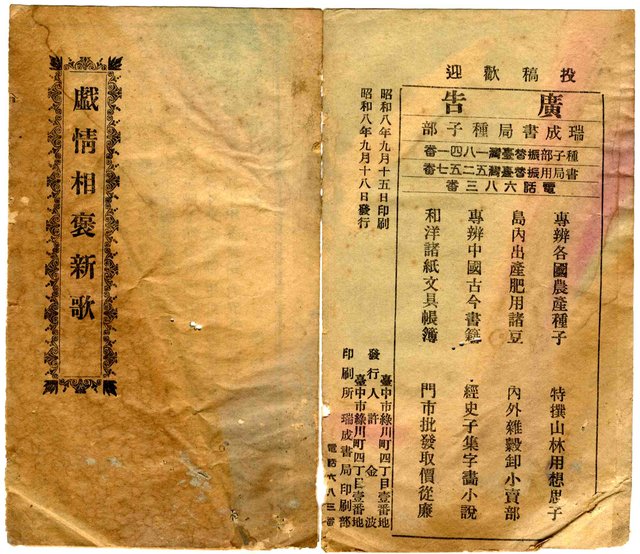 投稿歡迎
廣告
瑞成書局種子部
種子部振替臺灣一八四一番
書局用振替臺灣五二五七番
電話六八三番
專辨各國農產種子 特撰山林用想思子
島內出產肥用諸豆 內外雜穀卸小賣部
專辨中國古今書籍 經史子集字畫小說
和洋諸紙文具帳簿 門市批發取價從廉
昭和八年九月十五日印刷
昭和八年九月十八日發行
臺中市綠川町四丁目壹番地
發行人 許金波
臺中市綠川町四丁目壹番地
印刷所 瑞成書局印刷部
電話六八三番
戱情相褒新歌